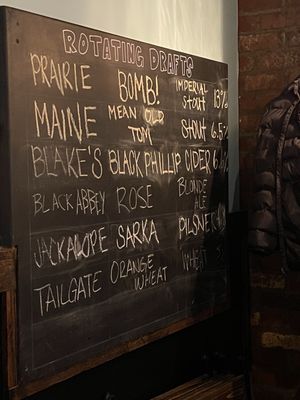 ROTATING DRAFTS
PRAIRIE BOMB! IMPERIAL STOUT 13%
MAINE MEAN OLD TOM STOUT 6.5%
BLAKE'S BLACK PHILLIP CIDER
BLACK ABBEY ROSE BLONDE ALE
JACKALOPE SARKA PILSNER
TAILGATE ORANGE WHEAT WHEAT